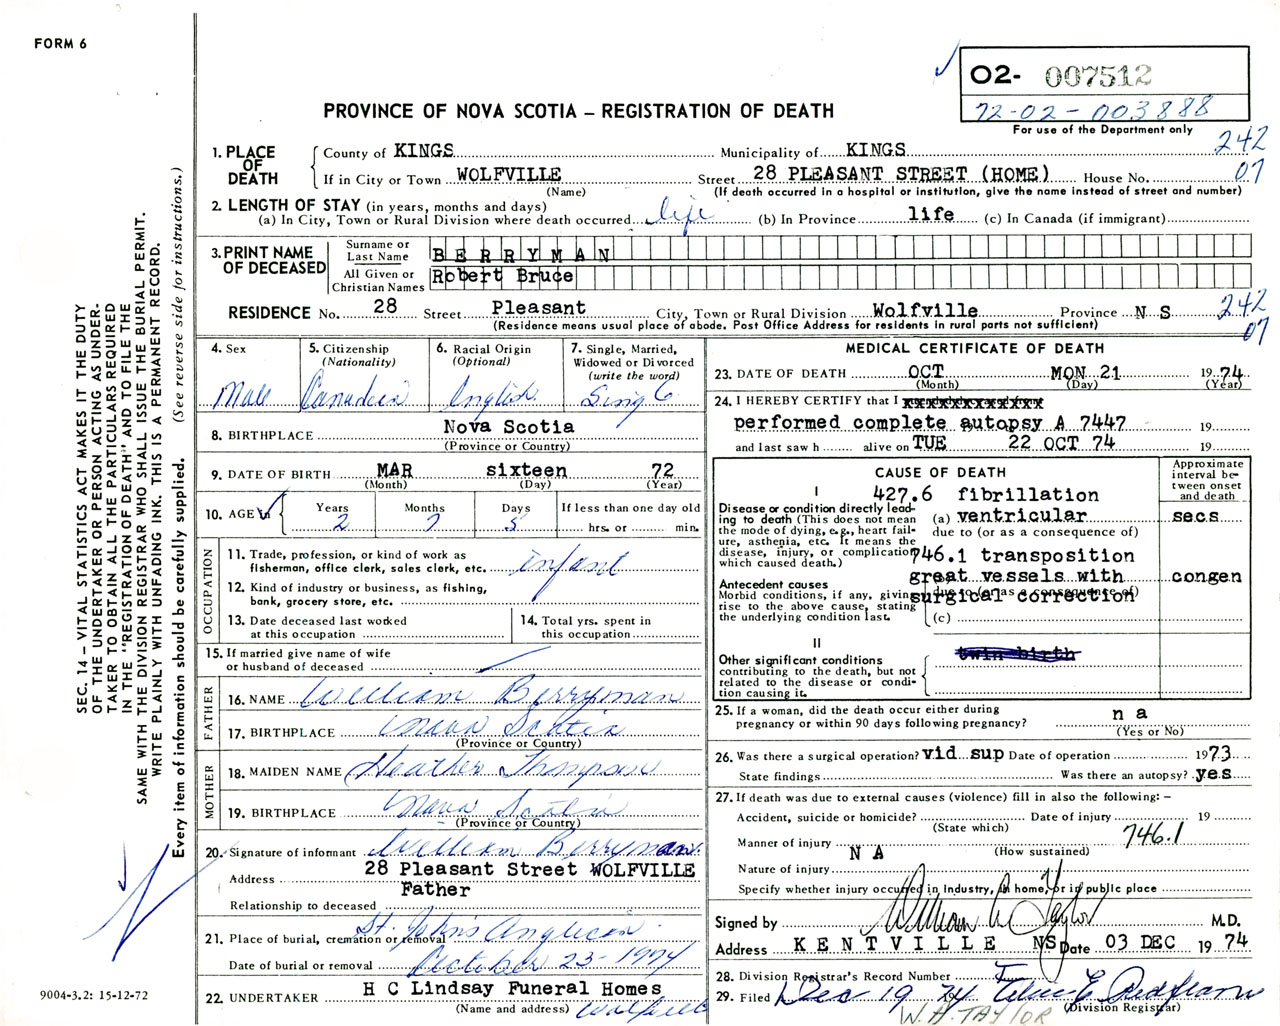 FORM 6
O2- 007512
72-02-003888
For use of the Department only
PROVINCE OF NOVA SCOTIA – REGISTRATION OF DEATH
242
07
1. PLACE OF DEATH
County of KINGS Municipality of KINGS
If in City or Town WOLFVILLE Street 28 PLEASANT STREET (HOME) House No.
(Name) (If death occurred in a hospital or institution, give the name instead of street and number)
2. LENGTH OF STAY (in years, months and days)
(a) In City, Town or Rural Division where death occurred life (b) In Province life (c) In Canada (if immigrant)
3. PRINT NAME OF DECEASED
Surname or Last Name BERRYMAN
All Given or Christian Names Robert Bruce
RESIDENCE No. 28 Street Pleasant City, Town or Rural Division Wolfville Province N S
(Residence means usual place of abode. Post Office Address for residents in rural parts not sufficient)
242
07
4. Sex Male
5. Citizenship (Nationality) Canadian
6. Racial Origin (Optional) English
7. Single, Married, Widowed or Divorced (write the word) Single
8. BIRTHPLACE Nova Scotia
(Province or Country)
9. DATE OF BIRTH MAR sixteen 72
(Month) (Day) (Year)
10. AGE Years Months Days If less than one day old
2 7 5 hrs. or min.
OCCUPATION
11. Trade, profession, or kind of work as fisherman, office clerk, sales clerk, etc. infant
12. Kind of industry or business, as fishing, bank, grocery store, etc.
13. Date deceased last worked at this occupation
14. Total yrs. spent in this occupation
15. If married give name of wife or husband of deceased
FATHER
16. NAME William Berryman
17. BIRTHPLACE Nova Scotia
(Province or Country)
MOTHER
18. MAIDEN NAME Heather Thompson
19. BIRTHPLACE Nova Scotia
(Province or Country)
20. Signature of informant William Berryman
Address 28 Pleasant Street WOLFVILLE
Father
Relationship to deceased
21. Place of burial, cremation or removal St. John's Anglican
Date of burial or removal October 23-1974
22. UNDERTAKER H C Lindsay Funeral Homes
(Name and address) Wolfville
MEDICAL CERTIFICATE OF DEATH
23. DATE OF DEATH OCT MON 21 1974
(Month) (Day) (Year)
24. I HEREBY CERTIFY that I
performed complete autopsy A 7447 19
and last saw h alive on TUE 22 OCT 74 19
CAUSE OF DEATH
Approximate interval between onset and death
I
427.6 fibrillation
Disease or condition directly leading to death (This does not mean the mode of dying, e.g., heart failure, asthenia, etc. It means the disease, injury, or complication which caused death.)
(a) ventricular secs
due to (or as a consequence of)
746.1 transposition
great vessels with congen
surgical correction
due to (or as a consequence of)
Antecedent causes
Morbid conditions, if any, giving rise to the above cause, stating the underlying condition last.
(c)
II
twin birth
Other significant conditions contributing to the death, but not related to the disease or condition causing it.
25. If a woman, did the death occur either during pregnancy or within 90 days following pregnancy? n a
(Yes or No)
26. Was there a surgical operation? vid sup Date of operation 1973
State findings Was there an autopsy? yes
27. If death was due to external causes (violence) fill in also the following: –
Accident, suicide or homicide? Date of injury 19
(State which)
746.1
Manner of injury N A
(How sustained)
Nature of injury
Specify whether injury occurred in Industry, in home, or in public place
Signed by William A Taylor M.D.
Address KENTVILLE NS Date 03 DEC 1974
28. Division Registrar's Record Number
29. Filed Dec 19 74
(Division Registrar)
W. A. TAYLOR
SEC. 14 – VITAL STATISTICS ACT MAKES IT THE DUTY
OF THE UNDERTAKER OR PERSON ACTING AS UNDER-
TAKER TO OBTAIN ALL THE PARTICULARS REQUIRED
IN THE "REGISTRATION OF DEATH" AND TO FILE THE
SAME WITH THE DIVISION REGISTRAR WHO SHALL ISSUE THE BURIAL PERMIT.
WRITE PLAINLY WITH UNFADING INK. THIS IS A PERMANENT RECORD.
Every item of information should be carefully supplied. (See reverse side for instructions.)
9004-3.2: 15-12-72